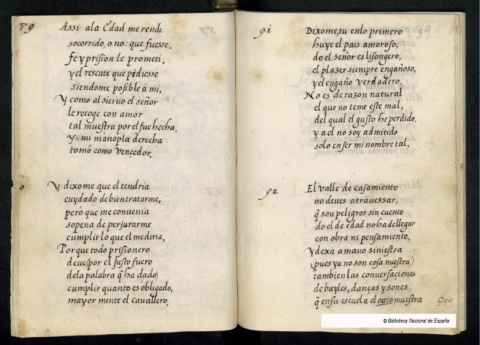 89
Assi ala Edad me rendi
socorrido, o no que fuesse,
fe y prision le prometi,
y el rescate que pidiesse
siendome posible a mi,
Y como al sieruo el señor
le recoge con amor
tal muestra por el fue hecha,
y mi manopla derecha
tomó como vencedor.
0
Y dixome que el tendria
cuydado de bien tratarme,
pero que me conuenia
so pena de perjurarme
cumplir lo que el mediria,
Porque todo prisionero
deue por el justo fuero
dela palabra q̃ ha dado
cumplir quanto es obligado,
mayor mente el cauallero.
91
Dixome, tu en lo primero
huye el pais amoroso,
do el señor es lisongero,
el plazer siempre engañoso,
y el engaño verdadero,
No es de razon natural
el que no teme este mal,
del qual el gusto he perdido,
y a el no soy admitido
solo en ser mi nombre tal,
92
El valle de casamiento
no deues atrauessar,
q̃ son peligros sin cuento
do el de edad no ha de llegar
con obra ni pensamiento,
Y dexa a mano siniestra
(pues ya no son cosa nuestra)
tambien las conuersaciones
de bayles, danças y sones
q̃ en su escuela el ocio muestra
Ocio
© Biblioteca Nacional de España